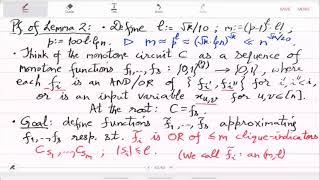 Pf of Lemma 2: • Define l := √k/10 ; m := (p-1)^l · l! ,
p := 100·l·lgn. ▷ m ≈ p^l ≤ (√k·lgn)^√k ≪ n^√k/20
• Think of the monotone circuit C as a sequence of
monotone functions f₁,..., fₛ : {0,1}^(n choose 2) → {0,1}, where
each fᵢ is an AND/OR of {fᵢ', fᵢ''} for i', i''<i
or is an input variable x_{u,v} for u,v∈[n].
At the root: C = fₛ.
• Goal: define functions f̃₁,..., f̃ₛ approximating
f₁,..., fₛ resp. st. f̃ᵢ is OR of ≤m clique-indicators
C_{S₁},..., C_{Sₘ} ; |Sⱼ| ≤ l. (We call f̃ᵢ : an (m,l)